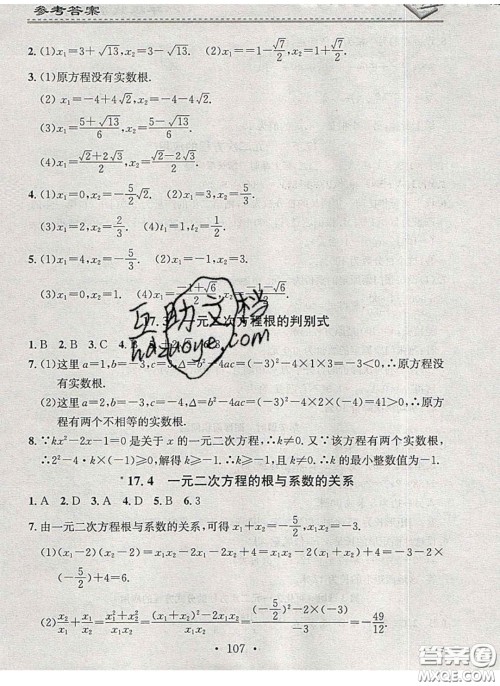 参考答案
2. (1)x₁=3+√13, x₂=3-√13. (2)x₁=1-√7/2, x₂=1+√7/2.
3. (1)原方程没有实数根.
(2)x₁=-4+4√2, x₂=-4-4√2.
(3)x₁=(5+√13)/6, x₂=(5-√13)/6.
(4)x₁=(√2+2√3)/2, x₂=(√2-2√3)/2.
4. (1)x₁=0, x₂=-5/2√2. (2)x₁=3, x₂=5/3.
(3)x₁=2, x₂=2/3. (4)t₁=1, t₂=1/2.
5. (1)x₁=4, x₂=-5/3. (2)x₁=-1, x₂=3.
(3)x₁=0, x₂=1. (4)x₁=(-1+√6)/2, x₂=(-1-√6)/2.
17.3 一元二次方程根的判别式
1. B 2. B 3. C 4. A
7. (1)这里a=1,b=-3,c=3,Δ=b²-4ac=(-3)²-4×1×3=-3<0,∴原方程没
有实数根.
(2)这里a=2,b=-3,c=-4,Δ=b²-4ac=(-3)²-4×2×(-4)=41>0,∴原方
程有两个不相等的实数根.
8. ∵kx²-2x-1=0是关于x的一元二次方程,∴k≠0. 又∵该方程有两个实数根,
∴2²-4·k×(-1)≥0,解得k≥-1,∴k≥-1且k≠0,∴k的最小整数值为-1.
*17.4 一元二次方程的根与系数的关系
1. A 2. D 3. A 4. D 5. B 6. 3
7. 由一元二次方程根与系数的关系,可得x₁+x₂=-5/2, x₁x₂=-3.
(1)(x₁-2)(x₂-2)=x₁x₂-2x₁-2x₂+4=x₁x₂-2(x₁+x₂)+4=-3-2×
(-5/2)+4=6.
(2)x₂/x₁+x₁/x₂=(x₁²+x₂²)/(x₁x₂)=((x₁+x₂)²-2x₁x₂)/(x₁x₂)=((-5/2)²-2×(-3))/(-3)=-49/12.
· 107 ·
互助文档
hzhuoye.com
MXQE.COM